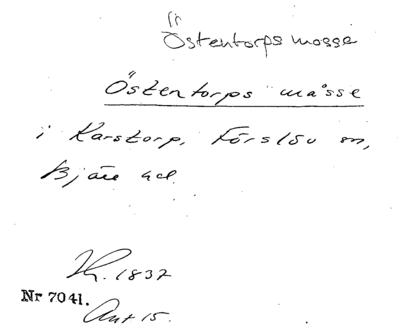 Östentorps mosse
Östentorps måsse
i Karstorp, Förslöv sn,
Bjäre hd.
1837
Nr 7041.
Akt 15.